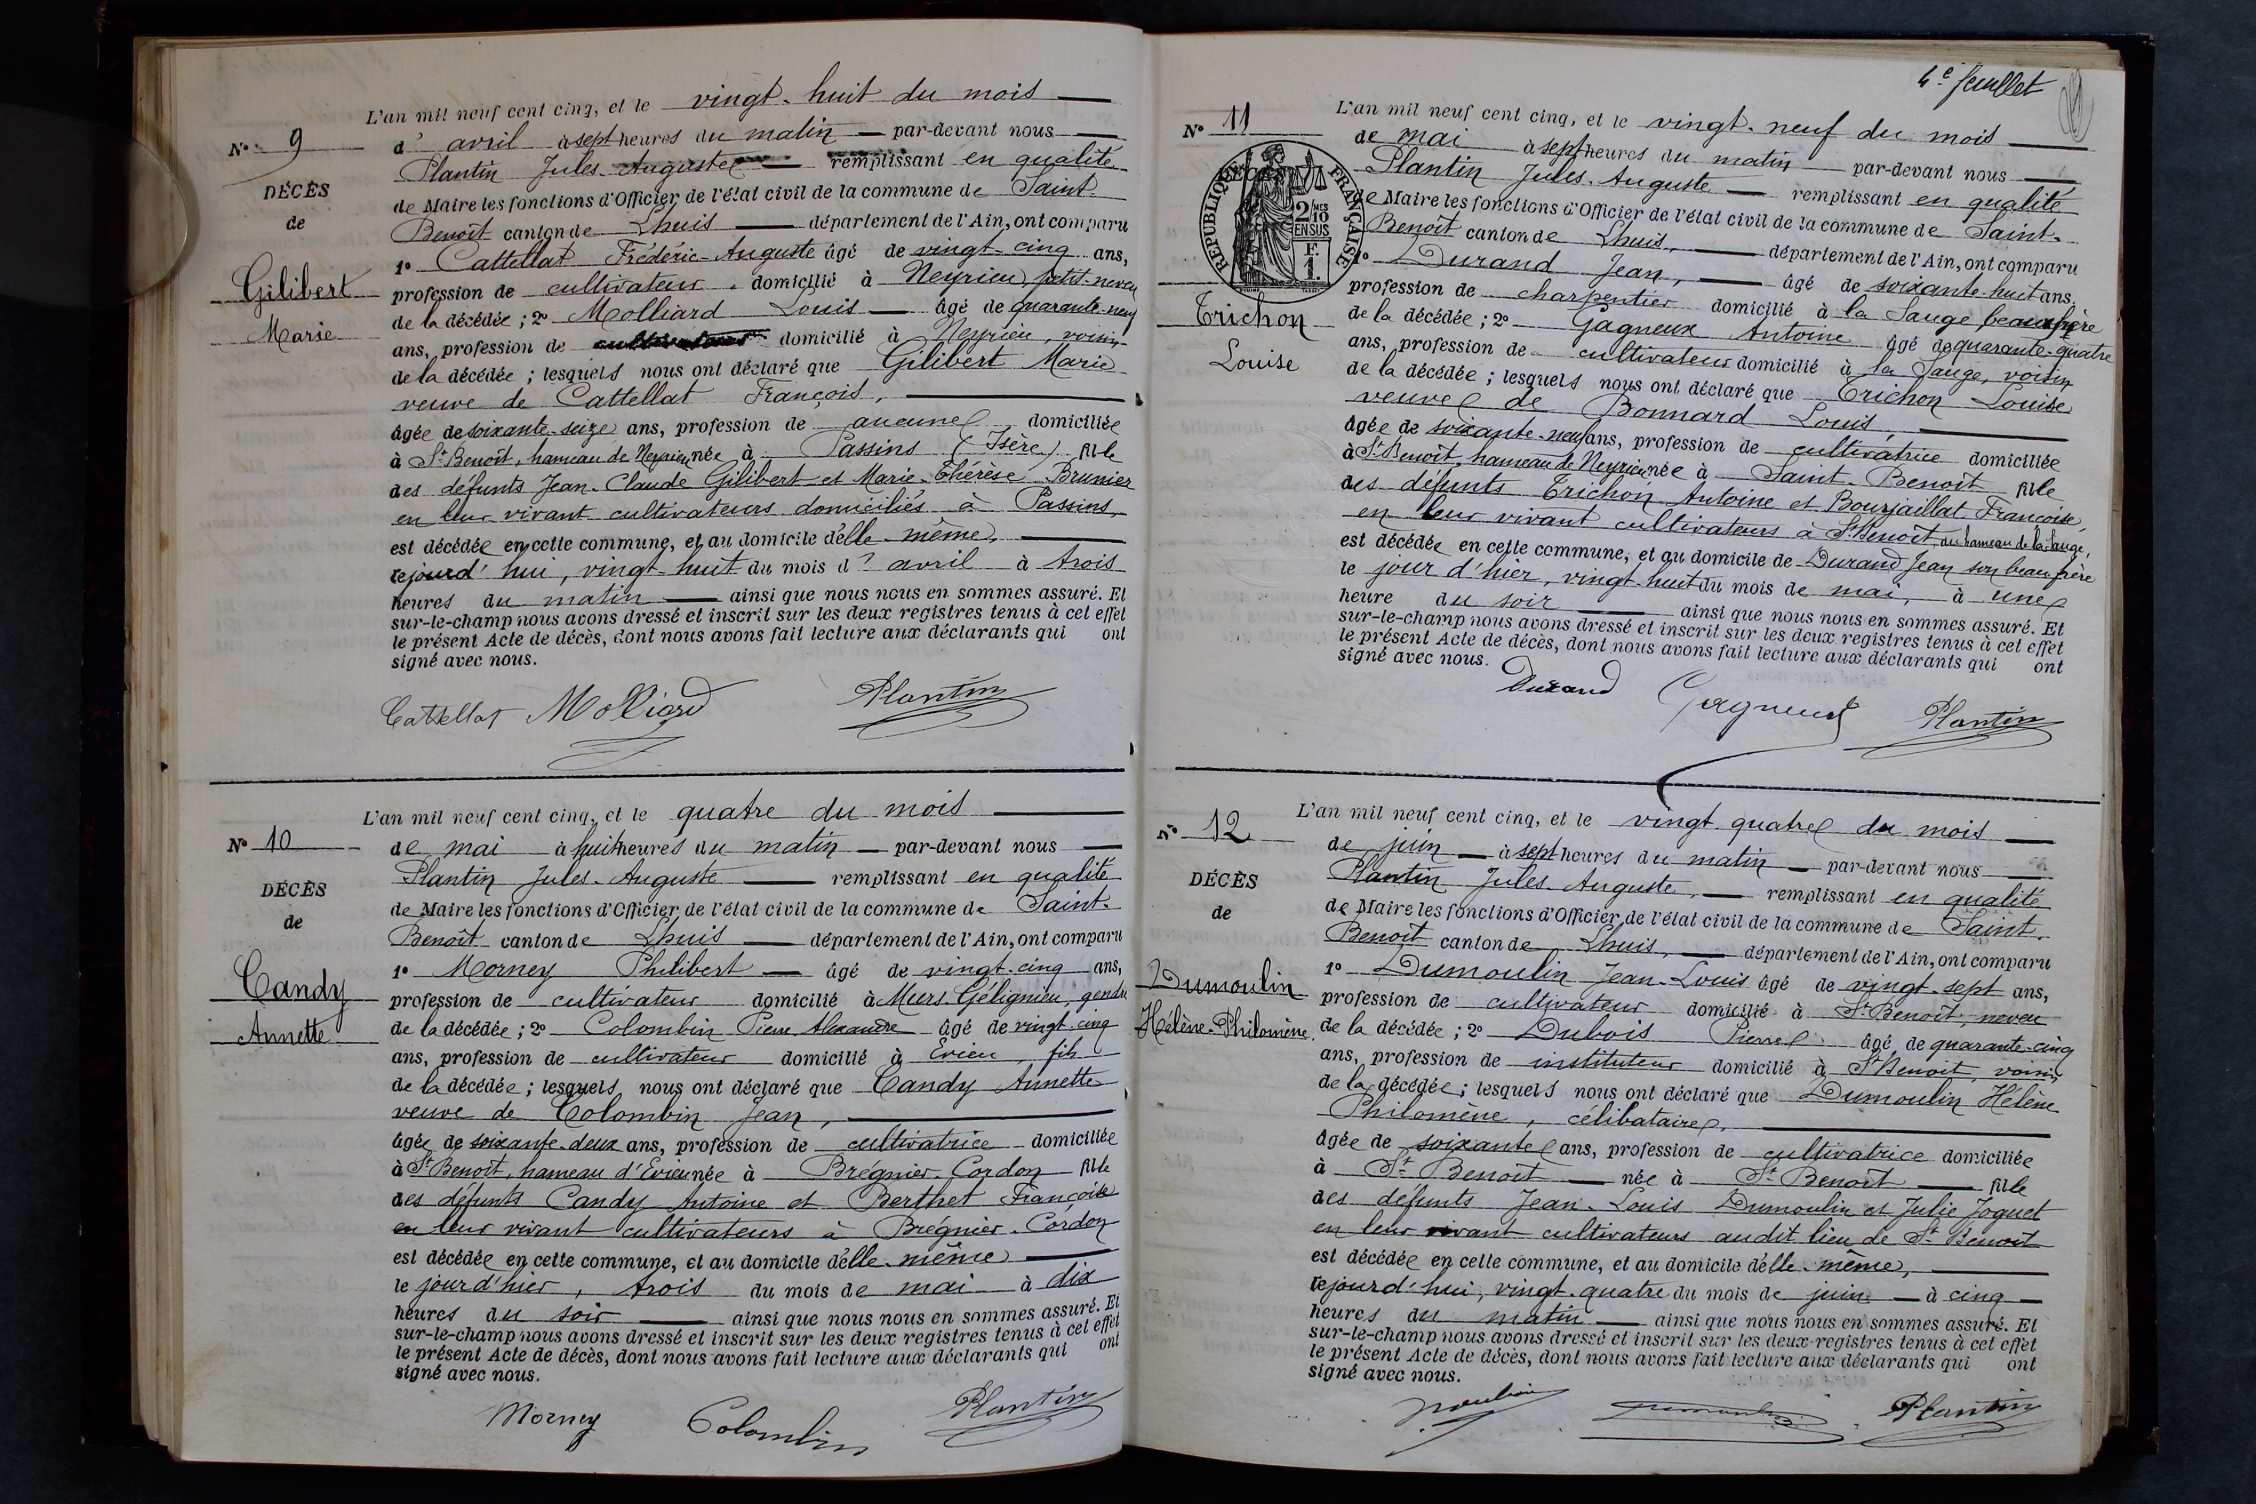 L'an mil neuf cent cinq, et le vingt-huit du mois
N° 9
d'avril à sept heures du matin par-devant nous
Plantin Jules-Auguste remplissant en qualité
DÉCÈS
de Maire les fonctions d'Officier de l'état civil de la commune de Saint-
de
Benoît canton de Lhuis département de l'Ain, ont comparu
1° Cattellat Frédéric-Auguste âgé de vingt-cinq ans,
Gilibert
profession de cultivateur domicilié à Neyrieu, petit-neveu
de la décédée ; 2° Molliard Louis âgé de quarante-neuf
Marie
ans, profession de cultivateur domicilié à Neyrieu, voisin
de la décédée ; lesquels nous ont déclaré que Gilibert Marie
veuve de Cattellat François,
âgée de soixante-seize ans, profession de aucune domiciliée
à St Benoît, hameau de Neyrieu née à Passins (Isère) fille
des défunts Jean-Claude Gilibert et Marie-Thérèse Brunier
en leur vivant cultivateurs domiciliés à Passins,
est décédée en cette commune, et au domicile d'elle-même,
cejourd'hui, vingt-huit du mois d'avril à trois
heures du matin ainsi que nous nous en sommes assuré. Et
sur-le-champ nous avons dressé et inscrit sur les deux registres tenus à cet effet
le présent Acte de décès, dont nous avons fait lecture aux déclarants qui ont
signé avec nous.
Cattellat Molliard Plantin
L'an mil neuf cent cinq, et le quatre du mois
N° 10
de mai à huit heures du matin par-devant nous
Plantin Jules-Auguste remplissant en qualité
DÉCÈS
de Maire les fonctions d'Officier de l'état civil de la commune de Saint-
de
Benoît canton de Lhuis département de l'Ain, ont comparu
1° Morney Philibert âgé de vingt-cinq ans,
Candy
profession de cultivateur domicilié à Murs-Gélignieu, gendre
de la décédée ; 2° Colombin Pierre Alexandre âgé de vingt-cinq
Annette
ans, profession de cultivateur domicilié à Evieu, fils
de la décédée ; lesquels nous ont déclaré que Candy Annette
veuve de Colombin Jean,
âgée de soixante-deux ans, profession de cultivatrice domiciliée
à St Benoît, hameau d'Evieu née à Brégnier-Cordon fille
des défunts Candy Antoine et Berthet Françoise
en leur vivant cultivateurs à Brégnier-Cordon
est décédée en cette commune, et au domicile d'elle-même
le jour d'hier, trois du mois de mai à dix
heures du soir ainsi que nous nous en sommes assuré. Et
sur-le-champ nous avons dressé et inscrit sur les deux registres tenus à cet effet
le présent Acte de décès, dont nous avons fait lecture aux déclarants qui ont
signé avec nous.
Morney Colombin Plantin
4e feuillet
L'an mil neuf cent cinq, et le vingt-neuf du mois
N° 11
de mai à sept heures du matin par-devant nous
Plantin Jules-Auguste remplissant en qualité
RÉPUBLIQUE FRANÇAISE
2/10 MES EN SUS
F. 1.
de Maire les fonctions d'Officier de l'état civil de la commune de Saint-
Benoît canton de Lhuis, département de l'Ain, ont comparu
1° Durand Jean, âgé de soixante-huit ans,
profession de charpentier domicilié à la Sauge beau-frère
Trichon
de la décédée ; 2° Gagneux Antoine âgé de quarante-quatre
ans, profession de cultivateur domicilié à la Sauge, voisin
Louise
de la décédée ; lesquels nous ont déclaré que Trichon Louise
veuve de Bonnard Louis,
âgée de soixante-neuf ans, profession de cultivatrice domiciliée
à St Benoît, hameau de Neyrieu née à Saint-Benoît fille
des défunts Trichon Antoine et Bourjaillat Françoise,
en leur vivant cultivateurs à St Benoît, au hameau de la Sauge,
est décédée en cette commune, et au domicile de Durand Jean son beau-frère
le jour d'hier, vingt-huit du mois de mai, à une
heure du soir ainsi que nous nous en sommes assuré. Et
sur-le-champ nous avons dressé et inscrit sur les deux registres tenus à cet effet
le présent Acte de décès, dont nous avons fait lecture aux déclarants qui ont
signé avec nous.
Durand Gagneux Plantin
L'an mil neuf cent cinq, et le vingt-quatre du mois
N° 12
de juin à sept heures du matin par-devant nous
Plantin Jules-Auguste, remplissant en qualité
DÉCÈS
de Maire les fonctions d'Officier de l'état civil de la commune de Saint-
de
Benoît canton de Lhuis, département de l'Ain, ont comparu
1° Dumoulin Jean-Louis âgé de vingt-sept ans,
Dumoulin
profession de cultivateur domicilié à St Benoît, neveu
Hélène-Philomène.
de la décédée ; 2° Dubois Pierre âgé de quarante-cinq
ans, profession de instituteur domicilié à St Benoit, voisin
de la décédée ; lesquels nous ont déclaré que Dumoulin Hélène
Philomène, célibataire,
âgée de soixante ans, profession de cultivatrice domiciliée
à St Benoît née à St Benoît fille
des défunts Jean-Louis Dumoulin et Julie Joguet
en leur vivant cultivateurs au dit lieu de St Benoît
est décédée en cette commune, et au domicile d'elle-même,
cejourd'hui, vingt-quatre du mois de juin à cinq
heures du matin ainsi que nous nous en sommes assuré. Et
sur-le-champ nous avons dressé et inscrit sur les deux registres tenus à cet effet
le présent Acte de décès, dont nous avons fait lecture aux déclarants qui ont
signé avec nous.
Plantin